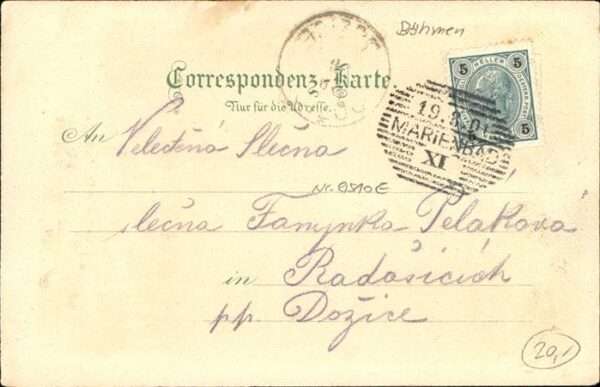 Böhmen
5 HELLER 5
Correspondenz-Karte
Nur für die Adresse.
19.8.01
MARIENBAD
XI
An Velectěná Slečna
Nr. 0510E
slečna Fanynka Pelákova
in Radošicích
pp. Dožice
20,1